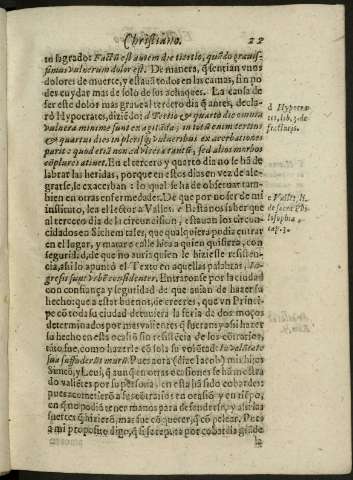 Christiano. 25
to sagrado: Factũ est autem die tertio, quãdo gravis-
simus vulnerum dolor est. De manera, q̃ sentian vnos
dolores de muerte, y estauã todos en las camas, sin po
der cuydar mas de solo de sus achaques. La causa de
ser este dolor mas graue al tercero dia q̃ antes, decla-
ró Hypocrates, diziẽdo: d Tertio & quarto die omnia
vulnera minime sunt exagitada;
& quartus dies in plerisq; vulneribus exacerbationes
parit: quod etiã non ad vices
cõplures atinet. En el tercero y quarto dia no se hã de
labrar las heridas, porque en estos dias en vez de ale-
grarse, se exacerban: lo qual se ha de obseruar tam-
bien en otras enfermedades. De que por no ser de mi
instituto, lea el lector a Valles. e Bastanos saber que
al tercero dia de la circuncision, estauan los circun-
cidados en Sichem tales, que qualquiera podia entrar
en el lugar, y matar o calle hita a quien quisiera, con
seguridad, de que no auria quien le hiziesse resisten-
cia, assi lo apuntó el Texto en aquellas palabras, In-
gressi sunt vrbẽ confidenter. Entraronse por la ciudad
con confiança y seguridad de que auian de hazer su
hecho: que a estar buenos, de creer es, que vn Princi-
pe cõ toda su ciudad detuuiera la furia de dos moços
determinados por mas valientes q̃ fueran: y assi hazer
su hecho en esta ocasiõ sin resistẽcia de los cõtrarios,
tãto fue, como hazerle cõ sola su volũtad: In volũtate
sua suffoderũt murũ. Pues aora (dize Iacob) mis hijos
Simeõ, y Leui, q̃ aunq̃ en otras ocasiones se hã mostra
do valiẽtes por su persona, en esta hã sido cobardes:
pues acometierõ a los cõtrarios en ocasiõ y en tiẽpo,
en q̃ no podiã tener manos para defenderse, y assi las
suertes q̃ hizierõ, mas fue cõ querer, q̃ cõ pelear. Pues
a mi proposito digo, q̃ si se reputa por cobardia grãde
la
d Hypocra-
tes, lib. 3. de
fracturis.
e Valles, li.
de sacra Phi-
losophia,
cap. 3.